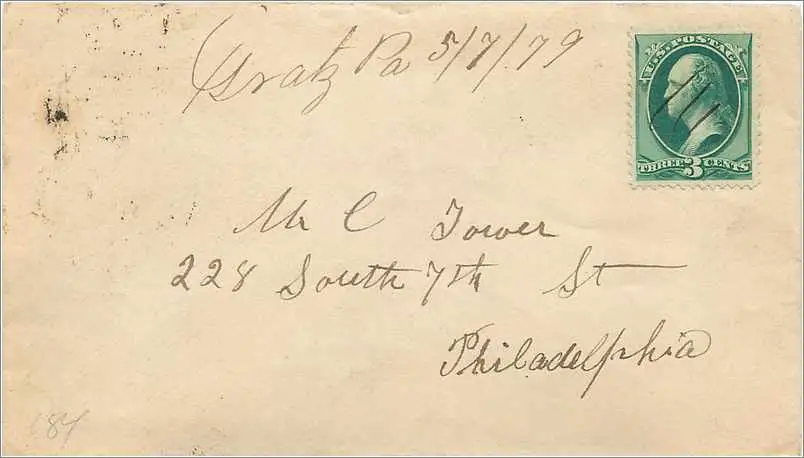 Gratz Pa 5/7/79
U.S. POSTAGE
THREE 3 CENTS
Mr C Tower
228 South 7th St
Philadelphia
184